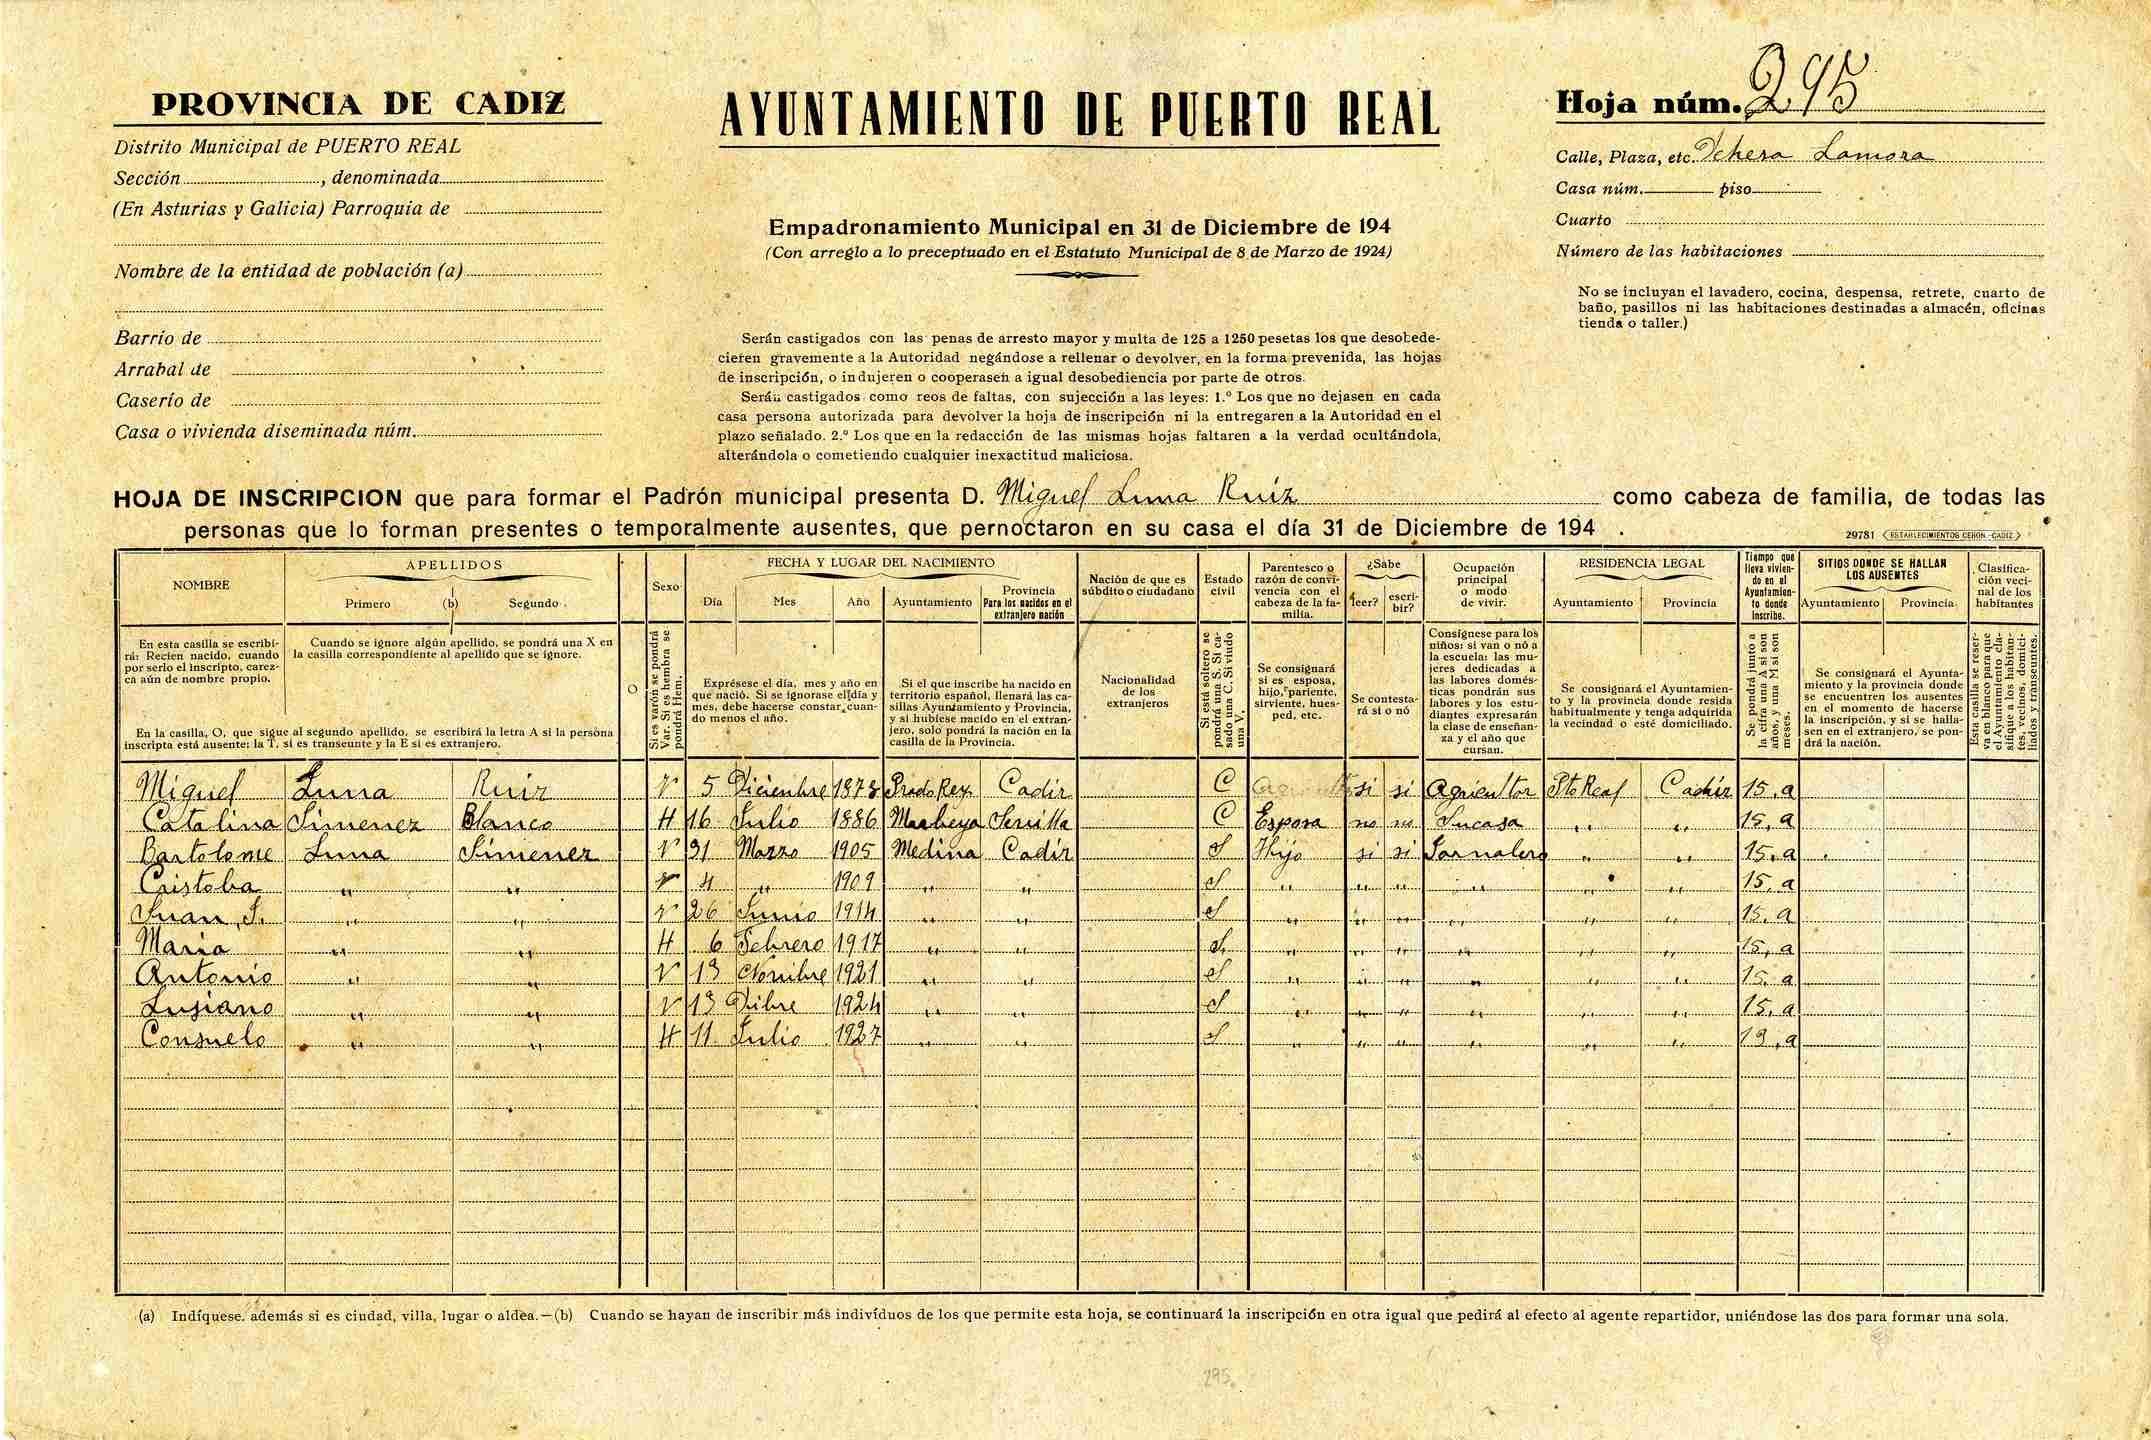 PROVINCIA DE CADIZ
Distrito Municipal de PUERTO REAL
Sección , denominada
(En Asturias y Galicia) Parroquia de
Nombre de la entidad de población (a)
Barrio de
Arrabal de
Caserío de
Casa o vivienda diseminada núm.
AYUNTAMIENTO DE PUERTO REAL
Empadronamiento Municipal en 31 de Diciembre de 194
(Con arreglo a lo preceptuado en el Estatuto Municipal de 8 de Marzo de 1924)
Serán castigados con las penas de arresto mayor y multa de 125 a 1250 pesetas los que desobede-
cieren gravemente a la Autoridad negándose a rellenar o devolver, en la forma prevenida, las hojas
de inscripción, o indujeren o cooperasen a igual desobediencia por parte de otros.
Serán castigados como reos de faltas, con sujección a las leyes: 1.º Los que no dejasen en cada
casa persona autorizada para devolver la hoja de inscripción ni la entregaren a la Autoridad en el
plazo señalado. 2.º Los que en la redacción de las mismas hojas faltaren a la verdad ocultándola,
alterándola o cometiendo cualquier inexactitud maliciosa.
Hoja núm. 295
Calle, Plaza, etc. Dehesa Lamora
Casa núm. piso
Cuarto
Número de las habitaciones
No se incluyan el lavadero, cocina, despensa, retrete, cuarto de
baño, pasillos ni las habitaciones destinadas a almacén, oficinas
tienda o taller.)
HOJA DE INSCRIPCION que para formar el Padrón municipal presenta D. Miguel Luna Ruiz como cabeza de familia, de todas las
personas que lo forman presentes o temporalmente ausentes, que pernoctaron en su casa el día 31 de Diciembre de 194 .
29781 ESTABLECIMIENTOS CERON.-CADIZ
NOMBRE
APELLIDOS
Primero (b) Segundo
O
Sexo
FECHA Y LUGAR DEL NACIMIENTO
Día Mes Año Ayuntamiento Provincia
Para los nacidos en el
extranjero nación
Nación de que es
súbdito o ciudadano
Estado
civil
Parentesco o
razón de convi-
vencia con el
cabeza de la fa-
milia.
¿Sabe
leer? escri-
bir?
Ocupación
principal
o modo
de vivir.
RESIDENCIA LEGAL
Ayuntamiento Provincia
Tiempo que
lleva vivien-
do en el
Ayuntamien-
to donde
inscribe.
SITIOS DONDE SE HALLAN
LOS AUSENTES
Ayuntamiento Provincia
Clasifica-
ción veci-
nal de los
habitantes
En esta casilla se escribi-
rá: Recien nacido, cuando
por serlo el inscripto, carez-
ca aún de nombre propio.
Cuando se ignore algún apellido, se pondrá una X en
la casilla correspondiente al apellido que se ignore.
En la casilla, O, que sigue al segundo apellido, se escribirá la letra A si la persona
inscripta está ausente; la T, si es transeunte y la E si es extranjero.
Si es varón se pondrá
Var. Si es hembra se
pondrá Hem.
Exprésese el día, mes y año en
que nació. Si se ignorase el día y
mes, debe hacerse constar cuan-
do menos el año.
Si el que inscribe ha nacido en
territorio español, llenará las ca-
sillas Ayuntamiento y Provincia,
y si hubiese nacido en el extran-
jero, solo pondrá la nación en la
casilla de la Provincia.
Nacionalidad
de los
extranjeros
Si está soltero se
pondrá una S. Si ca-
sado una C. Si viudo
una V.
Se consignará
si es esposa,
hijo, pariente,
sirviente, hues-
ped, etc.
Se contesta-
rá si o nó
Consígnese para los
niños: si van o nó a
la escuela: las mu-
jeres dedicadas a
las labores domés-
ticas pondrán sus
labores y los estu-
diantes expresarán
la clase de enseñan-
za y el año que
cursan.
Se consignará el Ayuntamien-
to y la provincia donde resida
habitualmente y tenga adquirida
la vecindad o esté domiciliado.
Se pondrá junto a
la cifra una A si son
años, y una M si son
meses.
Se consignará el Ayunta-
miento y la provincia donde
se encuentren los ausentes
en el momento de hacerse
la inscripción, y si se halla-
sen en el extranjero, se pon-
drá la nación.
Esta casilla se reser-
va en blanco para que
el Ayuntamiento cla-
sifique a los habitan-
tes, vecinos, domici-
liados y transeuntes.
Miguel Luna Ruiz V 5 Diciembre 1873 Prado Rey Cadiz C si si Agricultor Pto Real Cadiz 15,a
Catalina Simenez Blanco H 16 Julio 1886 Marbeya Sevilla C Esposa no no Sucasa " " 15,a
Bartolome Luna Simenez V 31 Marzo 1905 Medina Cadiz S Hijo si si Jornalero " " 15,a
Cristoba " " V 4 " 1909 " " S " " " " " " 15,a
Juan J. " " V 26 Junio 1914 " " S " " " " " " 15,a
Maria " " H 6 Febrero 1917 " " S " " " " " " 15,a
Antonio " " V 13 Nombre 1921 " " S " " " " " " 15,a
Lusiano " " V 13 Dibre 1924 " " S " " " " " " 15,a
Consuelo " " H 11 Julio 1927 " " S " " " " " " 13,a
(a) Indíquese, además si es ciudad, villa, lugar o aldea.—(b) Cuando se hayan de inscribir más indivíduos de los que permite esta hoja, se continuará la inscripción en otra igual que pedirá al efecto al agente repartidor, uniéndose las dos para formar una sola.
295